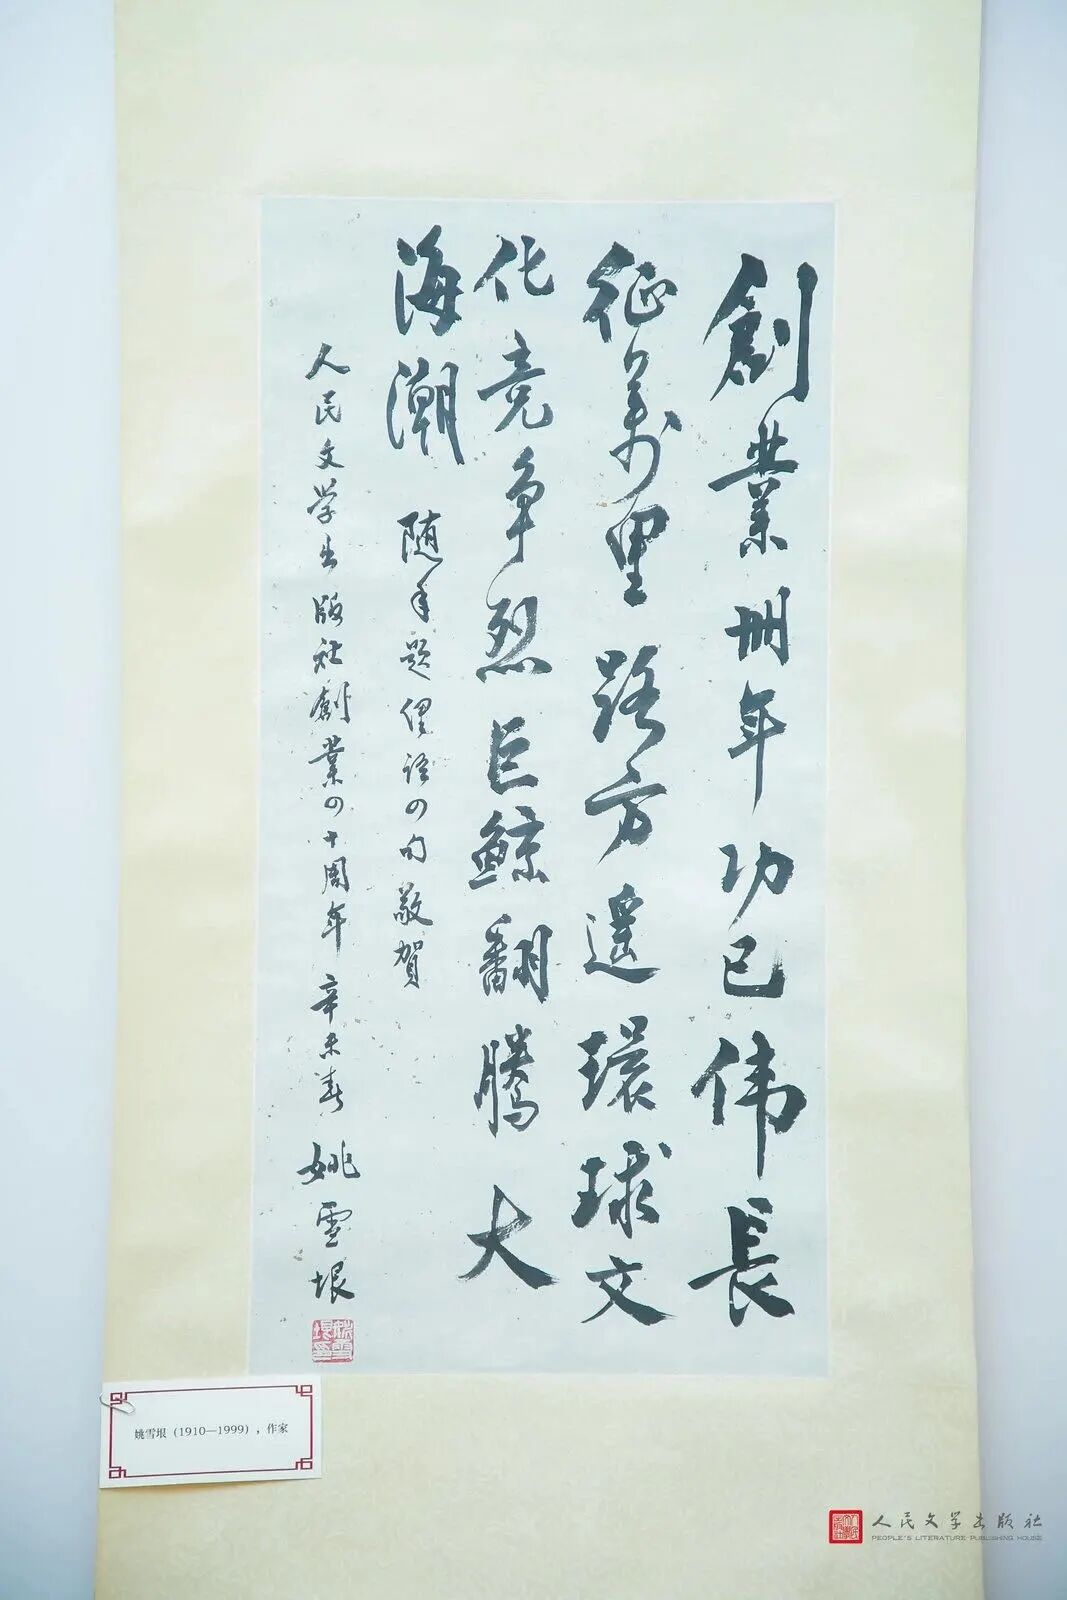 創業卌年功已伟長
征萬里路方遥環球文
化竞争烈巨鲸翻騰大
海潮 随手题俚语四句敬賀
人民文学出版社創業四十周年 辛未春 姚雪垠
姚雪垠印
姚雪垠（1910—1999），作家
人民文学出版社
PEOPLE'S LITERATURE PUBLISHING HOUSE